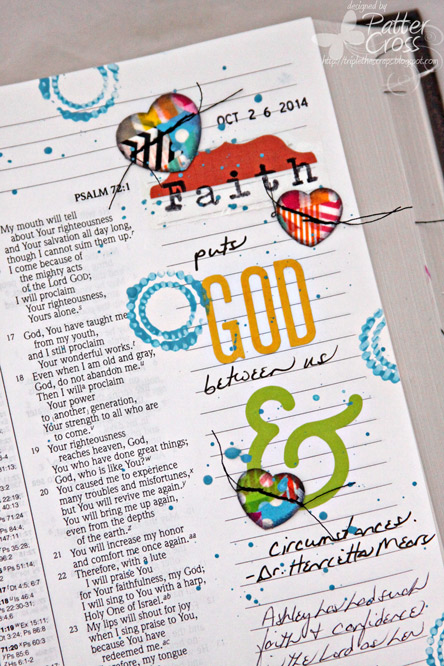 designed by
Patter
Cross
OCT 2 6 2014
PSALM 72:1
Faith
puts
GOD
between us
&
Circumstances.
-Dr. Henrietta Mears
Ashley has had such
faith & confidence
My mouth will tell
about Your righteousness
and Your salvation all day long,
though I cannot sum them up.
I come because of
the mighty acts
of the Lord GOD;
I will proclaim
Your righteousness,
Yours alone.
17 God, You have taught me
from my youth,
and I still proclaim
Your wonderful works.
18 Even when I am old and gray,
God, do not abandon me.
Then I will proclaim
Your power
to another generation,
Your strength to all who are
to come.
19 Your righteousness
reaches heaven, God,
You who have done great things;
God, who is like You?
20 You caused me to experience
many troubles and misfortunes,
but You will revive me again.
You will bring me up again,
even from the depths
of the earth.
21 You will increase my honor
and comfort me once again.
22 Therefore, with a lute
I will praise You
for Your faithfulness, my God;
I will sing to You with a harp,
Holy One of Israel.
23 My lips will shout for joy
when I sing praise to You,
because You have
redeemed me.
Therefore, my tongue